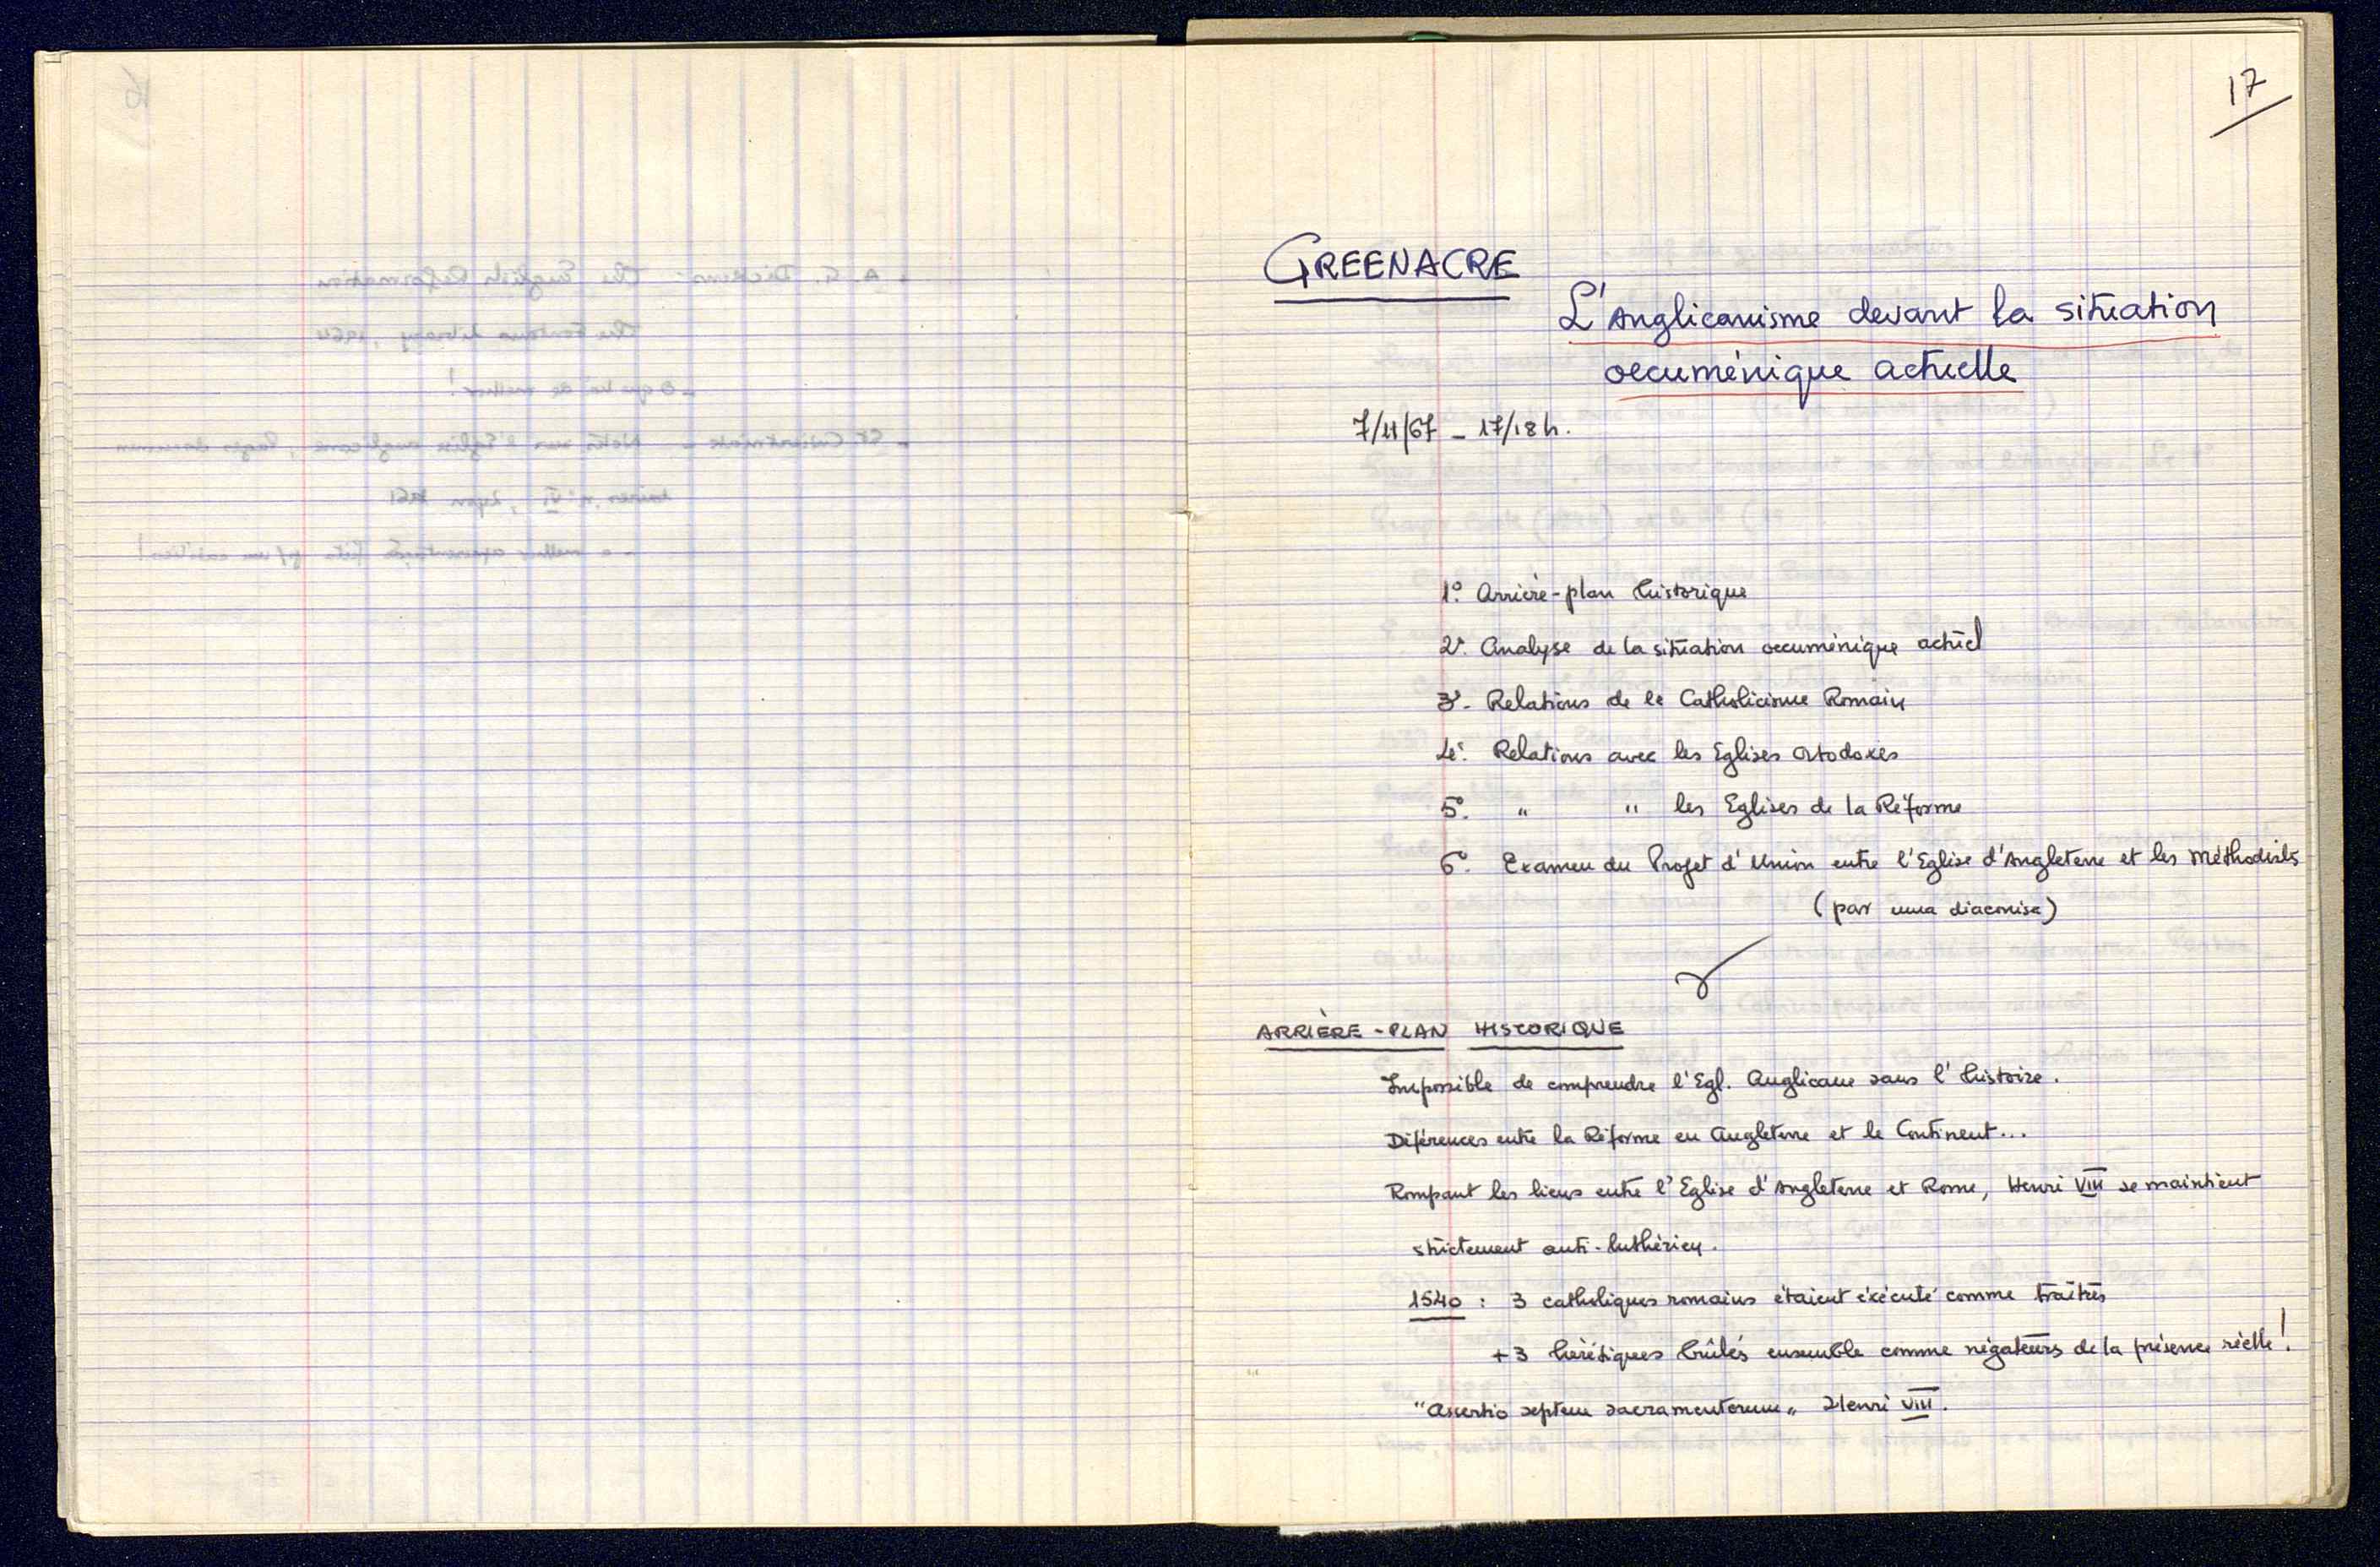 17
GREENACRE
L'Anglicanisme devant la situation
oecuménique actuelle
7/11/67 - 17/18 h.
1º Arrière-plan historique
2º. Analyse de la situation oecuménique actuel
3º- Relations de le Catholicisme Romain
4º. Relations avec les Eglises Ortodoxes
5º. " " les Eglises de la Réforme
6º. Examen du Projet d'Union entre l'Eglise d'Angleterre et les Méthodists
(par uma diaconisa)
ARRIÈRE-PLAN HISTORIQUE
Impossible de comprendre l'Egl. Anglicane sans l'histoire.
Diférences entre la Réforme en Angleterre et le Continent...
Rompant les liens entre l'Eglise d'Angleterre et Rome, Henri VIII se maintient
strictement anti-luthérien.
1540 : 3 catholiques romains étaient éxécuté comme traîtres
+3 hérétiques brûlés ensemble comme négateurs de la présence réelle!
"Assertio septem sacramentorum" Henri VIII.